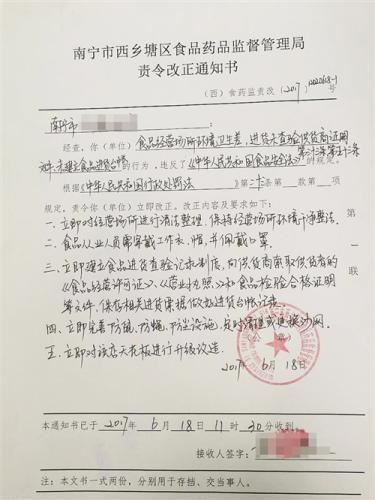 南宁市西乡塘区食品药品监督管理局
责令改正通知书
(西)食药监责改(2017)
南宁市
经查,你(单位)食品经营场所环境卫生差,进货未查验供货商证明
文件,未建立食品进货台帐的行为,违反了《中华人民共和国食品安全法》的规定。
根据《中华人民共和国行政处罚法》第二十三条第 款第 项
规定,责令你(单位)立即改正。改正内容及要求如下:
一、立即对经营场所进行清洁整理,保持经营场所环境干净整洁。
二、食品从业人员需穿戴工作衣、帽,并佩戴口罩。
三、立即建立食品进货查验记录制度,向供货商索取供货商的
《食品经营许可证》、《营业执照》和食品检验合格证明
等文件,保存相关进货票据,做好进货台帐记录。
四、立即完善防鼠、防蝇、防尘设施,及时清理或更换纱网。
五、立即对该店天花板进行升级改造。
(公章)
2017年6月18日
第一联
本通知书已于2017年6月18日11时30分收到。
接收人签字:
注:本文书一式两份,分别用于存档、交当事人。